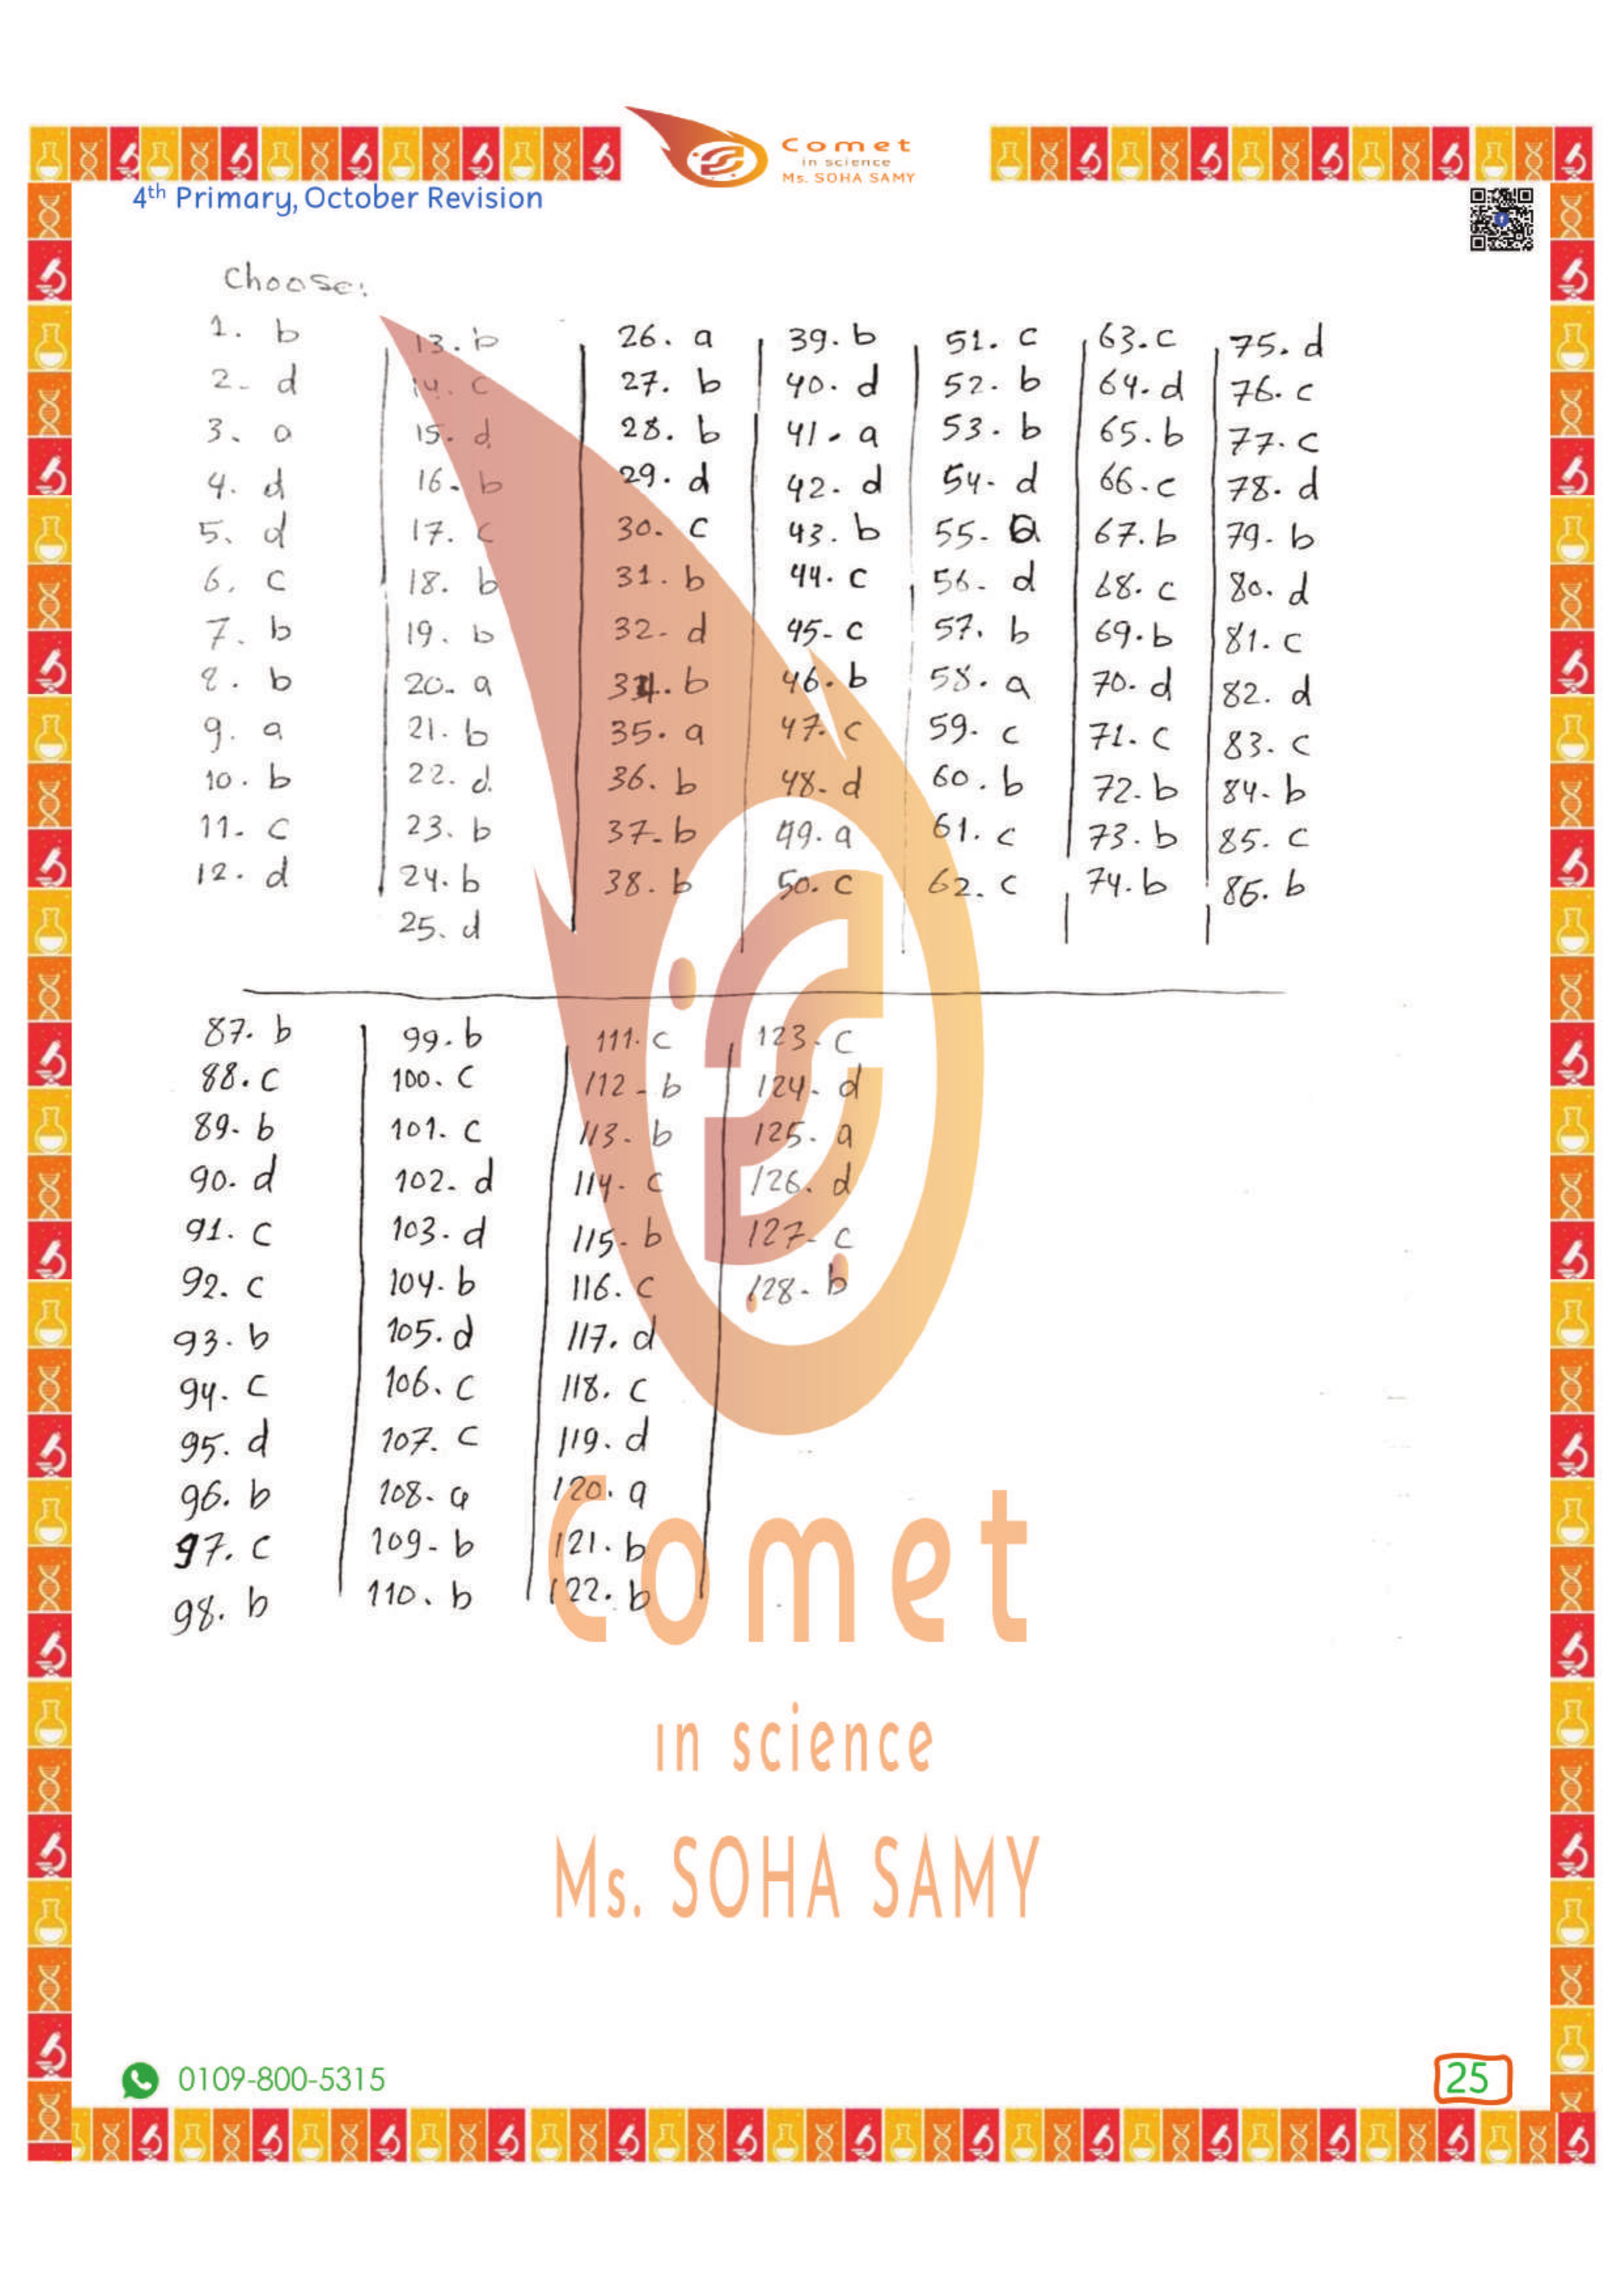 Comet
in science
Ms. SOHA SAMY
4th Primary, October Revision
Choose:
1. b
2- d
3. a
4. d
5. d
6. c
7. b
8. b
9. a
10. b
11- c
12. d
13. b
14. c
15. d
16. b
17. c
18. b
19. b
20- a
21. b
22. d.
23. b
24. b
25. d
26. a
27. b
28. b
29. d
30. c
31. b
32- d
34. b
35. a
36. b
37- b
38. b
39. b
40. d
41. a
42. d
43. b
44. c
45- c
46. b
47. c
48- d
49. a
50. c
51. c
52. b
53. b
54- d
55- a
56- d
57. b
58. a
59. c
60. b
61. c
62. c
63. c
64. d
65. b
66. c
67. b
68. c
69. b
70. d
71. c
72. b
73. b
74. b
75. d
76. c
77. c
78. d
79- b
80. d
81. c
82. d
83. c
84- b
85. c
86. b
87. b
88. c
89- b
90. d
91. c
92. c
93. b
94. c
95. d
96. b
97. c
98. b
99. b
100. c
101. c
102- d
103. d
104. b
105. d
106. c
107. c
108- a
109- b
110. b
111. c
112- b
113- b
114- c
115- b
116. c
117. d
118. c
119. d
120. a
121. b
122. b
123. c
124- d
125. a
126. d
127- c
128- b
Comet
in science
Ms. SOHA SAMY
0109-800-5315
25